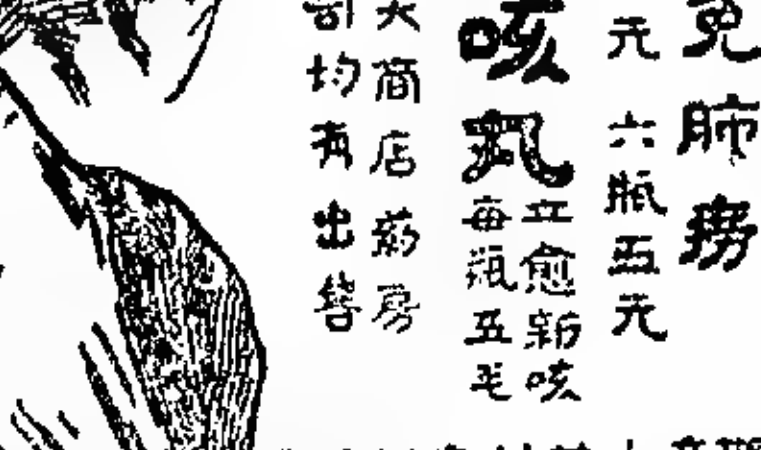 免肺痨
元 六瓶五元
咳
立愈新咳
每瓶五毛
大商店葯房
司均有出售